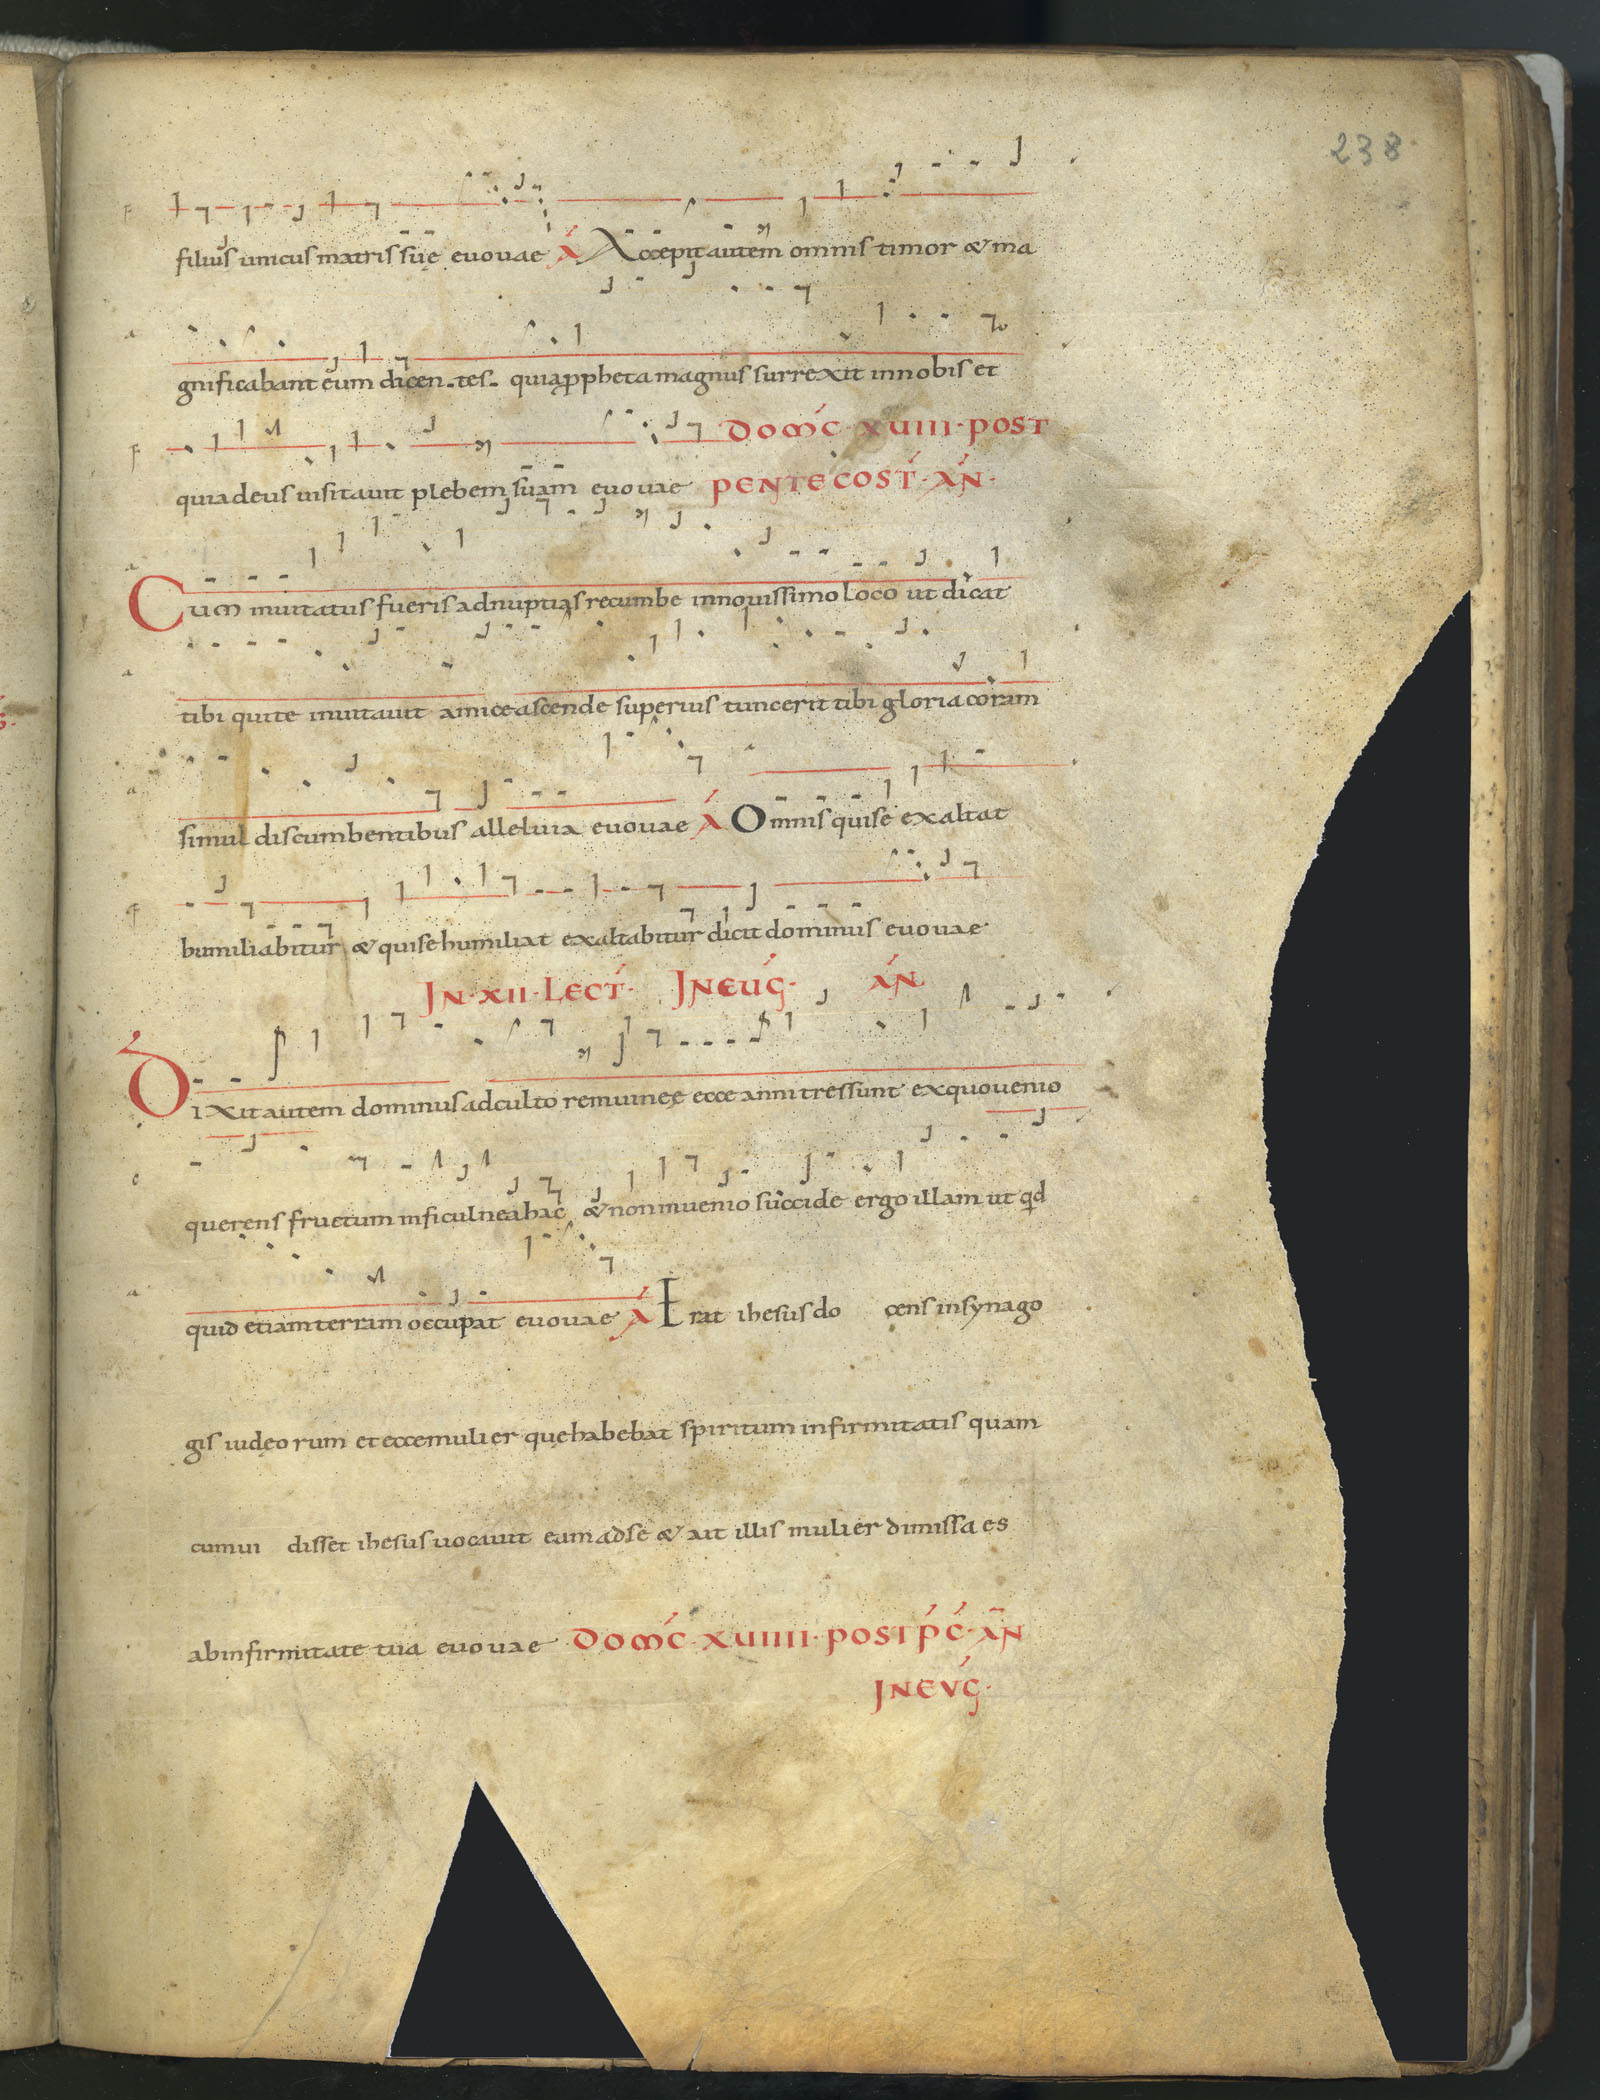 238
filius unicus matris suę euouae A Accepit autem omnis timor & ma
gnificabant eum dicen-tes- quia ppheta magnus surrexit in nobis et
quia deus uisitauit plebem suam euouae DOMC XUIII POST
PENTECOST AN
Cum inuitatus fueris ad nuptias recumbe in nouissimo loco ut dicat
tibi qui te inuitauit amice ascende superius tunc erit tibi gloria coram
simul discumbentibus alleluia euouae A Omnis qui se exaltat
humiliabitur & qui se humiliat exaltabitur dicit dominus euouae
IN XII LECT IN EUG AN
Dixit autem dominus ad cultorem uineę ecce anni tres sunt ex quo uenio
querens fructum in ficulnea hac & non inuenio succide ergo illam ut qd
quid etiam terram occupat euouae A Erat ihesus do cens in synago
gis iudęorum et ecce mulier quę habebat spiritum infirmitatis quam
cum ui disset ihesus uocauit eam ad se & ait illis mulier dimissa es
ab infirmitate tua euouae DOMC XUIIII POST PC AN
IN EVG